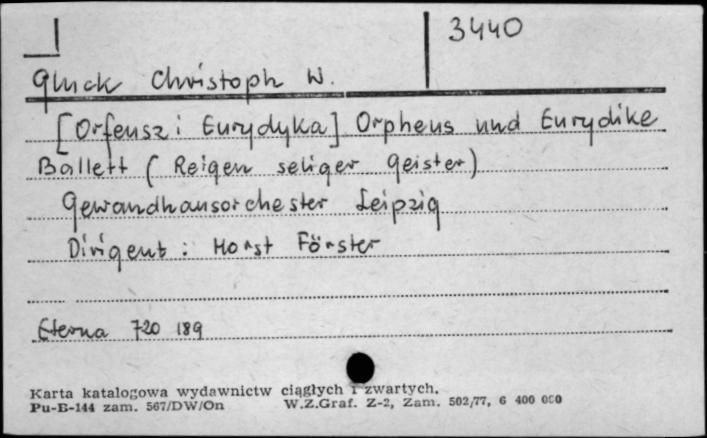 3440
Gluck Christoph W.
[Orfeusz i Eurydyka] Orpheus und Eurydike
Ballett (Reigen seliger Geister)
Gewandhausorchester Leipzig
Dirigent: Horst Förster
Eterna 720 189
Karta katalogowa wydawnictw ciągłych i zwartych.
Pu-B-144 zam. 567/DW/On W.Z.Graf. Z-2, Zam. 502/77, 6 400 000